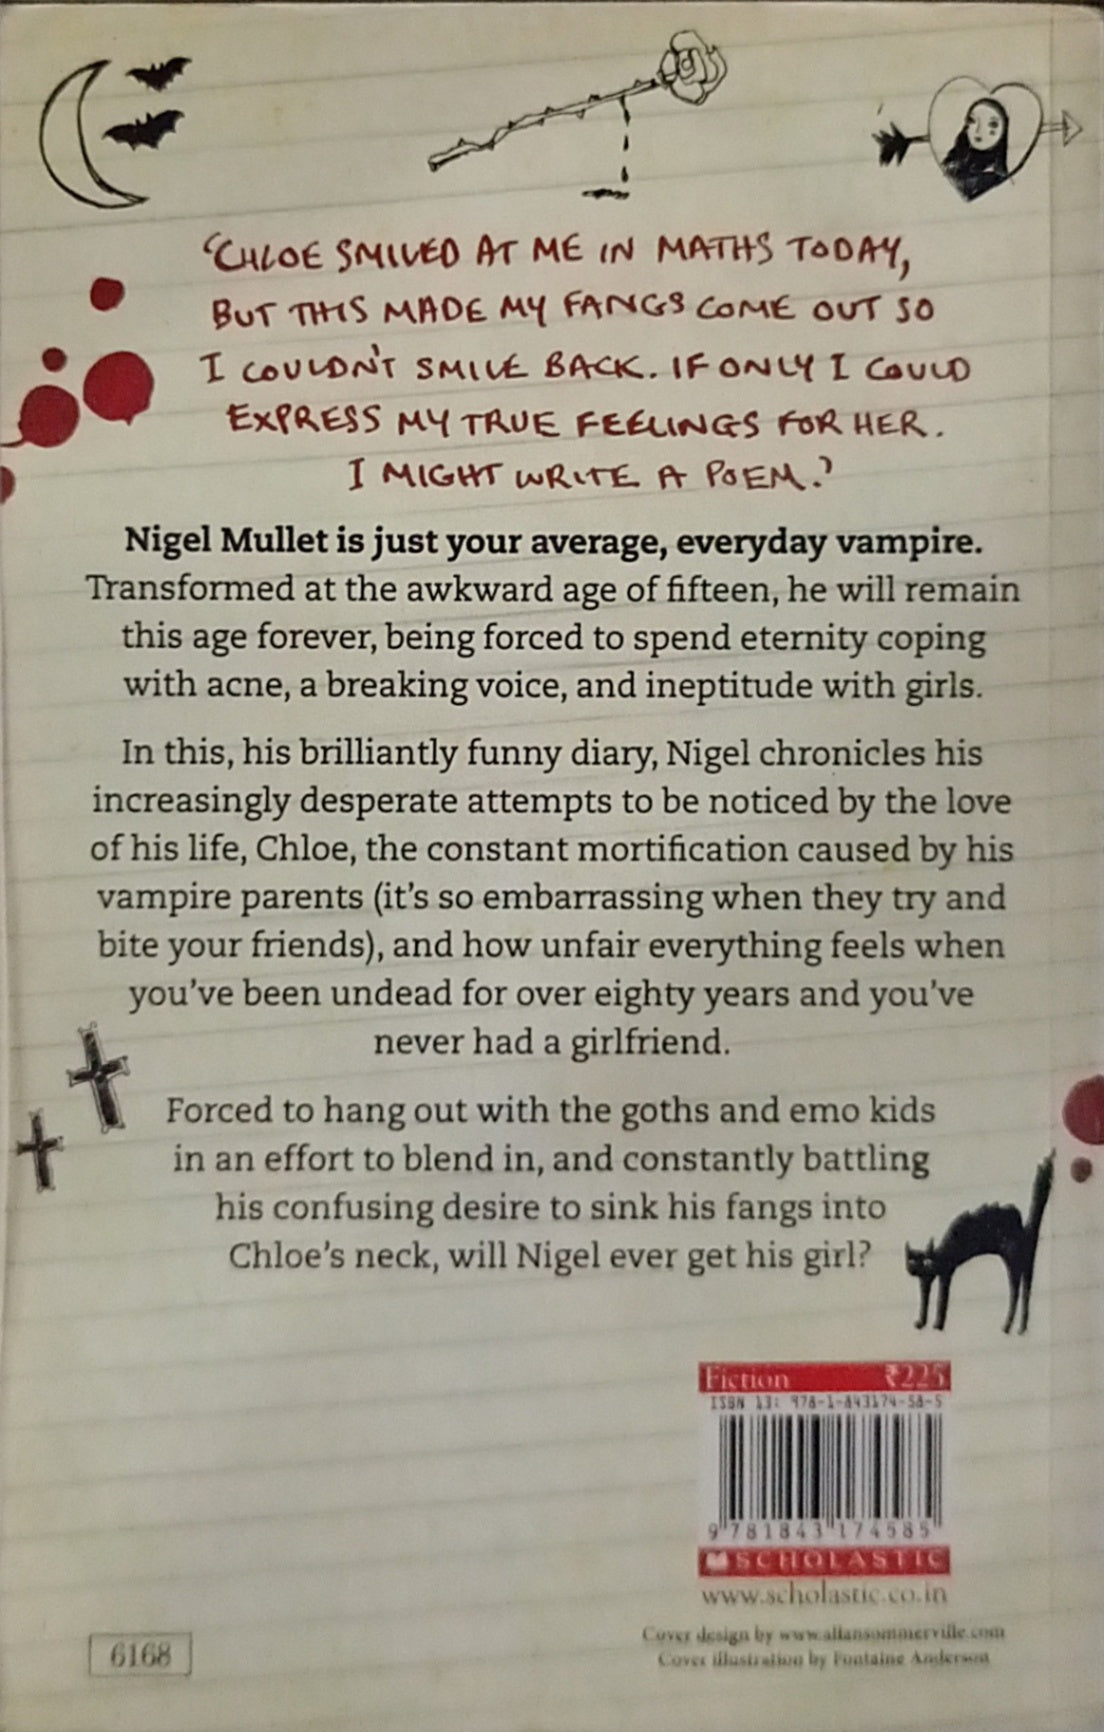 ‘CHLOE SMILED AT ME IN MATHS TODAY,
BUT THIS MADE MY FANGS COME OUT SO
I COULDN'T SMILE BACK. IF ONLY I COULD
EXPRESS MY TRUE FEELINGS FOR HER.
I MIGHT WRITE A POEM.’
Nigel Mullet is just your average, everyday vampire.
Transformed at the awkward age of fifteen, he will remain
this age forever, being forced to spend eternity coping
with acne, a breaking voice, and ineptitude with girls.
In this, his brilliantly funny diary, Nigel chronicles his
increasingly desperate attempts to be noticed by the love
of his life, Chloe, the constant mortification caused by his
vampire parents (it's so embarrassing when they try and
bite your friends), and how unfair everything feels when
you've been undead for over eighty years and you've
never had a girlfriend.
Forced to hang out with the goths and emo kids
in an effort to blend in, and constantly battling
his confusing desire to sink his fangs into
Chloe's neck, will Nigel ever get his girl?
Fiction ₹225
ISBN 13: 978-1-843174-58-5
9 781843 174585
SCHOLASTIC
www.scholastic.co.in
Cover design by www.allansommerville.com
Cover illustration by Fontaine Anderson
6168